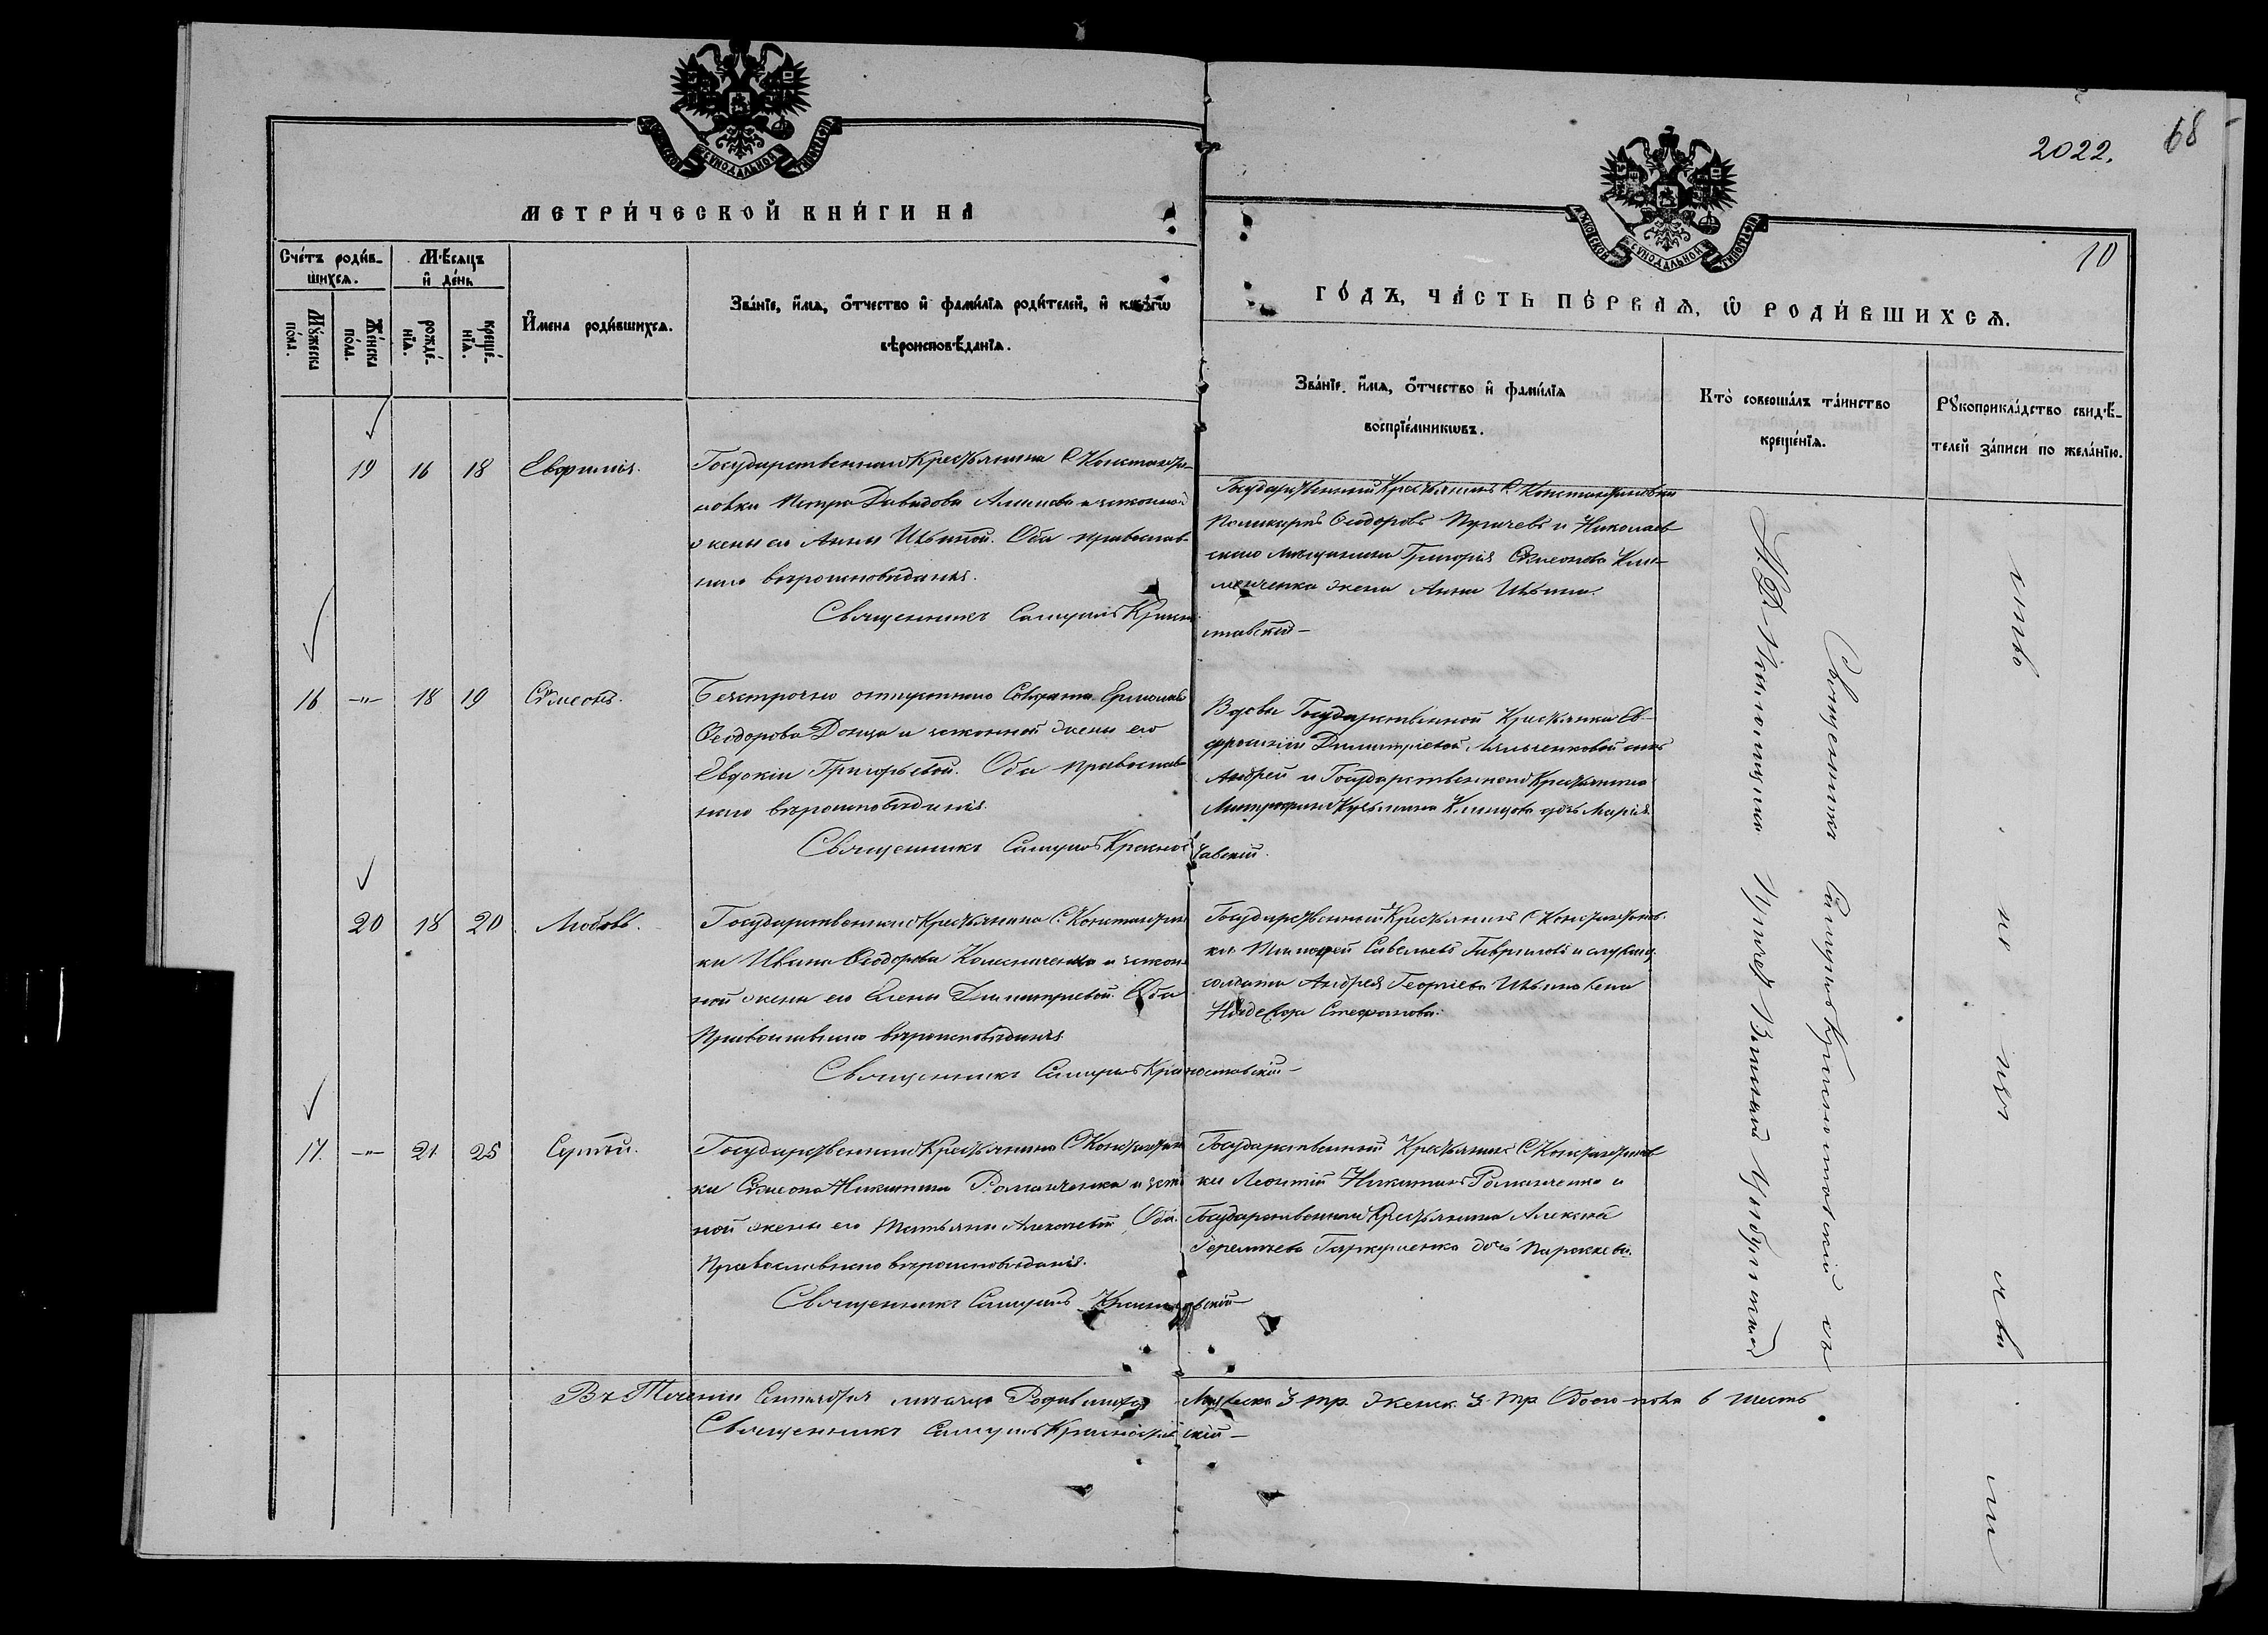 2022.
68
10
МЕТРИ́ЧЕСКОЙ КНИ́ГИ НА
ГО́ДЪ, ЧА́СТЬ ПЕ́РВАЯ, Ѡ РОДИ́ВШИХСЯ.
Сче́тъ роди́в-
шихся.
Мѣсяцъ
и де́нь
Му́жеска
по́ла.
Же́нска
по́ла.
рожде́-
нїя.
креще́-
нїя.
И́мена роди́вшихся.
Зва́нїе, и́мя, о́тчество и фами́лїя роди́телей, и
вѣроисповѣ́данїя.
Зва́нїе, и́мя, о́тчество и фами́лїя
воспрїе́мниковъ.
Кто̀ соверша́лъ та́инство
креще́нїя.
Рукоприкла́дство свидѣ́-
телей за́писи по жела́нїю.
19 16 18 Евфимія.
Государственнаго Крестьянина С. Константи-
новки Петра Давидова и законной
жены его Анны Ильиной. Оба православ-
наго вѣроисповѣданія.
Священникъ Самуилъ Красно
ставскій
Государственный Крестьянинъ С. Константиновки
Поликарпъ Ѳеодоровъ и Николаев
скаго мѣщанина Григорія Сѵмеонова Кли-
менченка жена Анна Ильина.
16 -"- 18 19 Сѵмеонъ.
Безсрочно отпускнаго Солдата
Ѳеодорова Донца и законной жены его
Евдокіи Григорьевой. Оба православ
наго вѣроисповѣданія.
Священникъ Самуилъ Красно
ставскій.
Вдовы Государственной Крестьянки Ев-
фросиніи Димитріевой сынъ
Андрей и Государственнаго Крестьянина
Митрофана Кузьмина дочь Марія.
20 18 20 Любовь.
Государственнаго Крестьянина С. Константинов
ки Ивана Ѳеодорова Колесниченка и закон
ной жены его Елены Димитріевой. Оба
Православнаго вѣроисповѣданія
Священникъ Самуилъ Красноставскій
Государственный Крестьянинъ С. Константинов-
ки Тимоѳей Савельевъ Гавриловъ и
солдата Андрея Георгіева Ильина жена
Надежда Стефанова.
17. -"- 21 25 Сергій.
Государственнаго Крестьянина С. Константинов
ки Сѵмеона Никитина Романченка и закон
ной жены его Татьяны Алексѣевой. Оба
Православнаго вѣроисповѣданія.
Священникъ Самуилъ Красноставскій
Государственный Крестьянинъ С. Константинов
ки Леонтій Никитинъ Романченко и
Государственнаго Крестьянина Алексѣя
дочь Параскева.
Священникъ Самуилъ Красноставскій съ
Въ Теченіи Сентября мѣсяца Родившихся Мужеска 3 тр. Женск. 3. тр Обоего пола 6 шесть
Священникъ Самуилъ Красноставскій